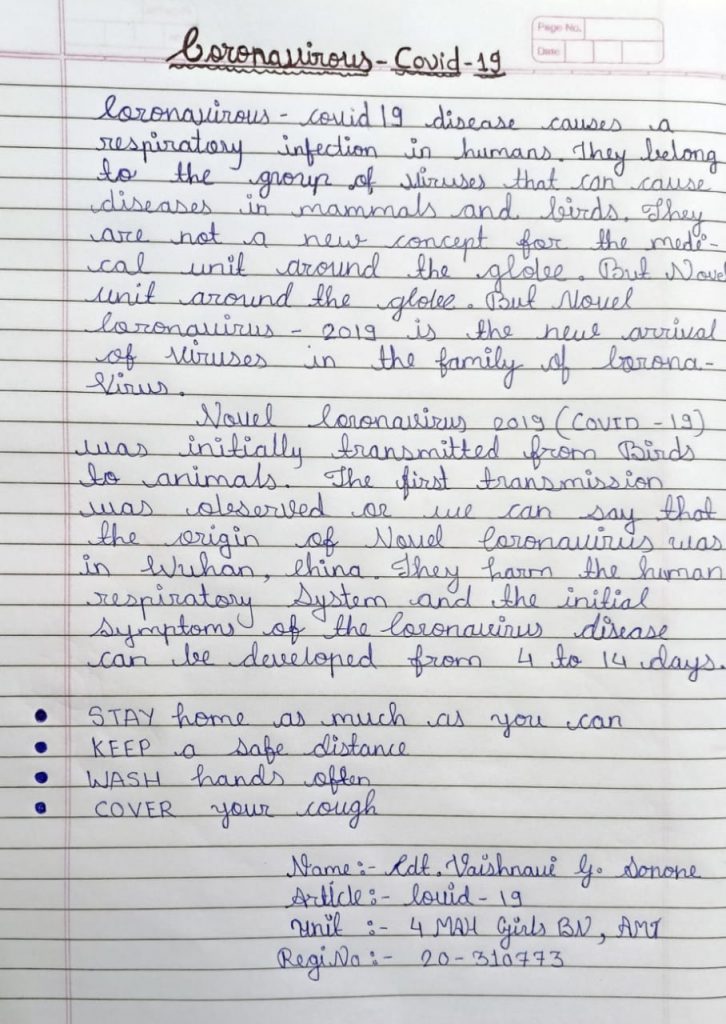 Page No.
Date
Coronavirous - Covid-19
Coronavirous - covid 19 disease causes a
respiratory infection in humans. They belong
to the group of viruses that can cause
diseases in mammals and birds. They
are not a new concept for the medi-
cal unit around the globe. But Novel
unit around the globe. But Novel
Coronavirus - 2019 is the new arrival
of viruses in the family of Corona-
Virus.
Novel Coronavirus 2019 (COVID -19)
was initially transmitted from Birds
to animals. The first transmission
was observed or we can say that
the origin of Novel Coronavirus was
in Wuhan, China. They harm the human
respiratory System and the initial
symptoms of the Coronavirus disease
can be developed from 4 to 14 days.
• STAY home as much as you can
• KEEP a safe distance
• WASH hands often
• COVER your cough
Name:- Cdt. Vaishnavi G. Sonone
Article:- Covid-19
Unit :- 4 MAH Girls BN, AMT
Regi No:- 20-310773